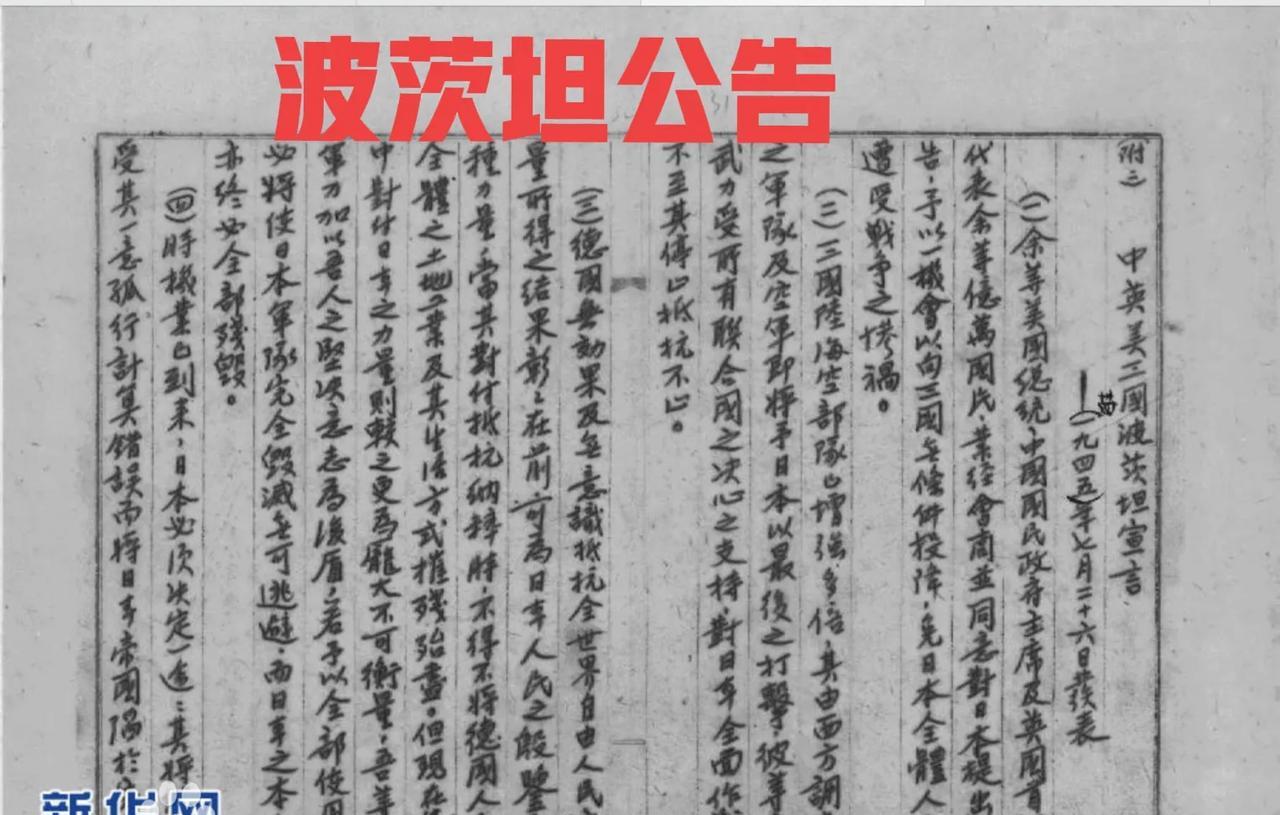 波茨坦公告
附二　中英美三國波茨坦宣言
(一九四五)年七月二十六日發表
(一)余等美國總統、中國國民政府主席及英國首
代表余等億萬國民，業經會商並同意對日本提出
告，予以一機會以向三國無條件投降，免日本全體人
遭受戰爭之慘禍。
(二)三國陸海空部隊已增強多倍，其由西方調
之軍隊及空軍即將予日本以最後之打擊，彼等
武力受所有聯合國之決心之支持，對日本全面作
不至其停止抵抗不止。
(三)德國無効果及無意識抵抗全世界自由人民
量所得之結果彰彰在前，可為日本人民之殷鑒
種力量，當其對付抵抗納粹時，不得不將德國人
全體之土地工業及其生活方式摧殘殆盡。但現在
中對付日本之力量則較之更為龐大不可衡量，吾等
軍力加以吾人之堅決意志為後盾，若予以全部使用
必將使日本軍隊完全毀滅無可逃避，而日本之本
亦終必全部殘毀。
(四)時機業已到來，日本必須決定一途：其將
受其一意孤行計算錯誤而將日本帝國陷於
新华网